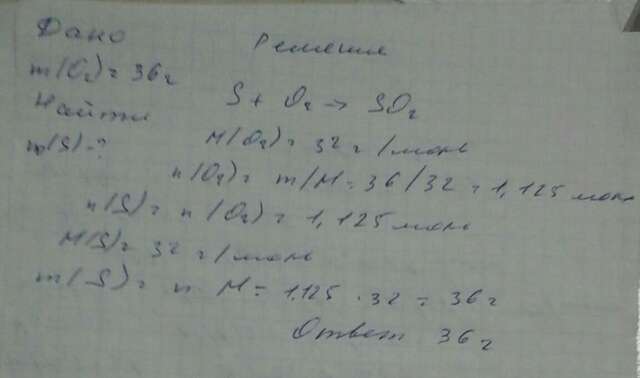 Дано
Решение
m(O₂) = 36 г
Найти
S + O₂ → SO₂
m(S) - ?
M(O₂) = 32 г/моль
n(O₂) = m/M = 36/32 = 1,125 моль
n(S) = n(O₂) = 1,125 моль
M(S) = 32 г/моль
m(S) = n M = 1,125 · 32 = 36 г
Ответ 36 г